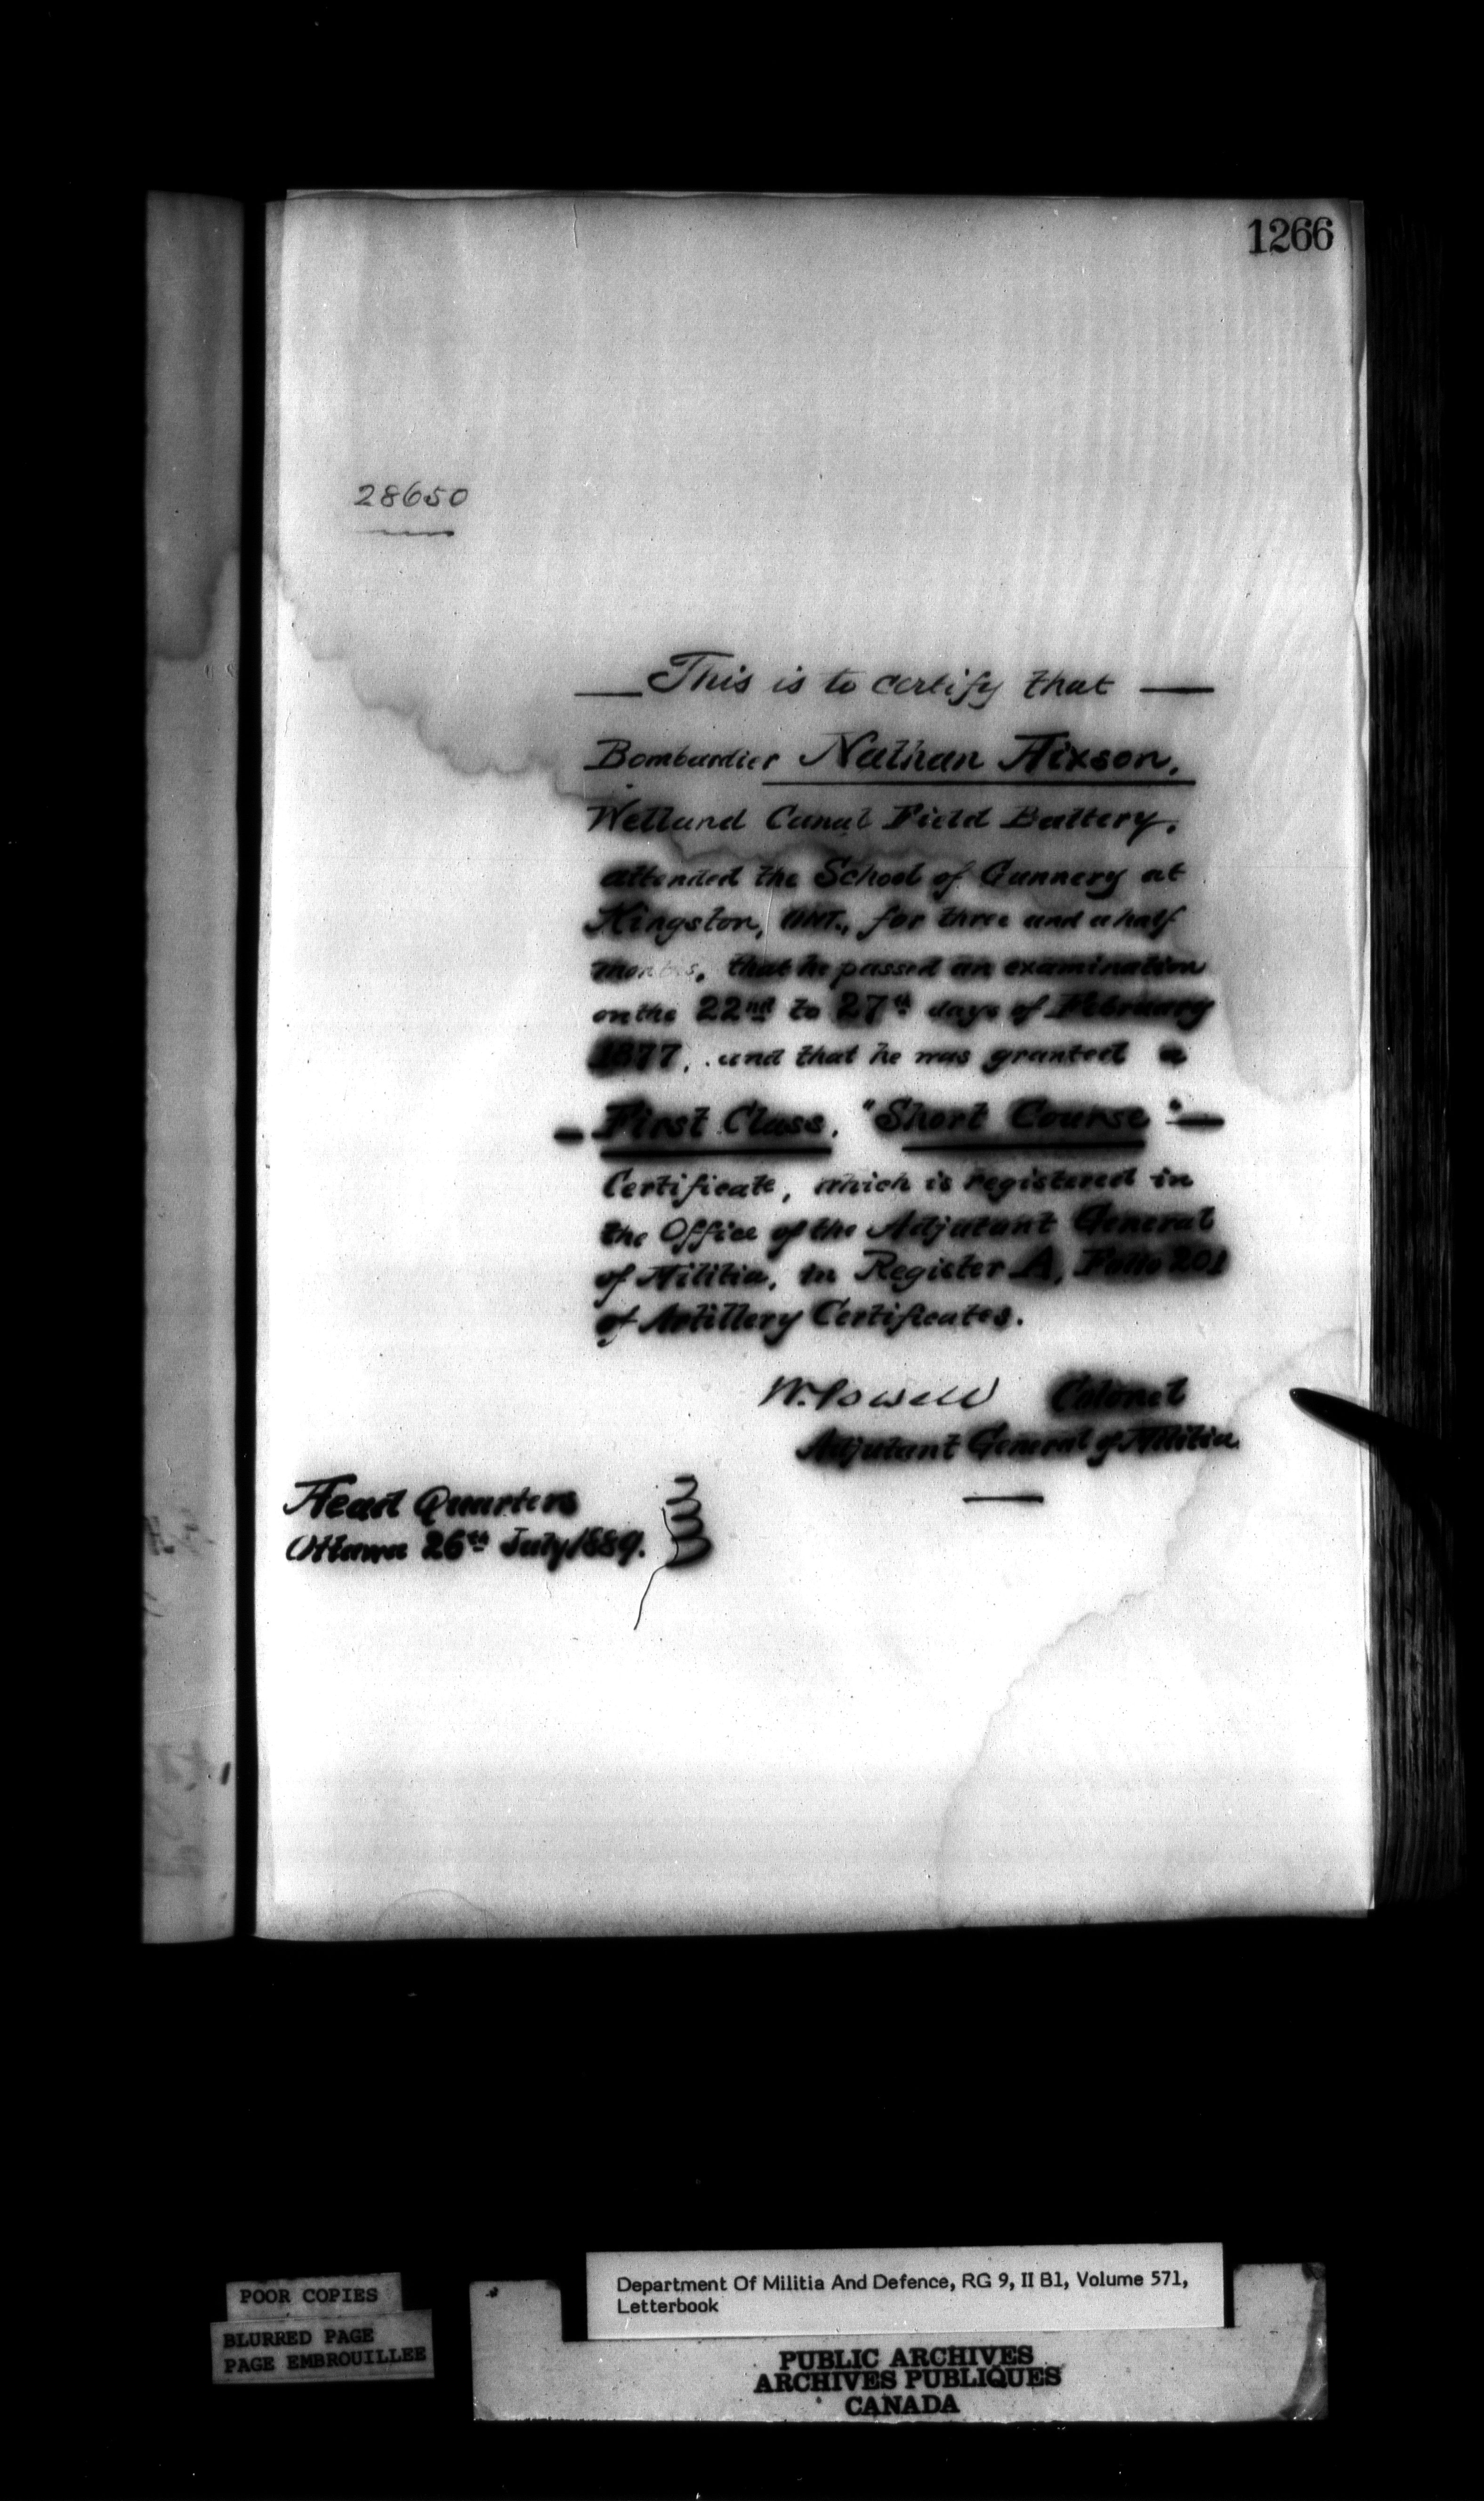 1266
28650
This is to certify that
Bombardier Nathan Hixson,
Welland Canal Field Battery,
attended the School of Gunnery at
Kingston, ONT., for three and a half
months, that he passed an examination
on the 22nd to 27th days of February
1877, and that he was granted a
First Class. "Short Course"
Certificate, which is registered in
the Office of the Adjutant General
of Militia, in Register A, Folio 201
of Artillery Certificates.
W. Powell Colonel
Adjutant General of Militia.
Head Quarters
Ottawa 26th July 1889.
POOR COPIES
BLURRED PAGE
PAGE EMBROUILLEE
Department Of Militia And Defence, RG 9, II B1, Volume 571,
Letterbook
PUBLIC ARCHIVES
ARCHIVES PUBLIQUES
CANADA